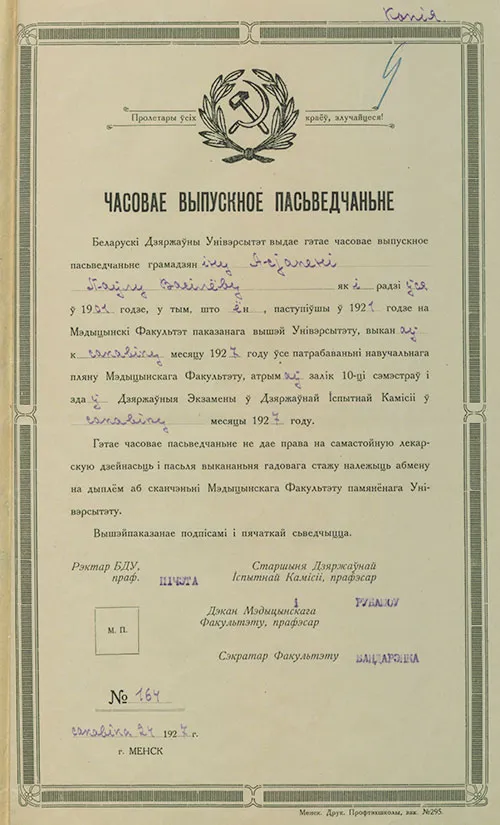 Копія.
Пролетары ўсіх краёў, злучайцеся!
ЧАСОВАЕ ВЫПУСКНОЕ ПАСЬВЕДЧАНЬНЕ
Беларускі Дзяржаўны Унівэрсытэт выдае гэтае часовае выпускное
пасьведчаньне грамадзяніну
Паўлу Васілёву які радзіўся
ў 1901 годзе, у тым, што ён, паступіўшы ў 1921 годзе на
Мэдыцынскі Факультэт паказанага вышэй Унівэрсытэту, выканаў
к сакавіку месяцу 1927 году ўсе патрабаваньні навучальнага
пляну Мэдыцынскага Факультэту, атрымаў залік 10-ці сэмэстраў і
здаў Дзяржаўныя Экзамены ў Дзяржаўнай Іспытнай Камісіі ў
сакавіку месяцы 1927 году.
Гэтае часовае пасьведчаньне не дае права на самастойную лекар-
скую дзейнасьць і пасьля выкананьня гадовага стажу належыць абмену
на дыплём аб сканчэньні Мэдыцынскага Факультэту памянёнага Уні-
вэрсытэту.
Вышэйпаказанае подпісамі і пячаткай сьведчыцца.
Рэктар БДУ,
праф. ПІЧЭТА
Старшыня Дзяржаўнай
Іспытнай Камісіі, прафэсар
і
Дэкан Мэдыцынскага
Факультэту, прафэсар
М. П.
Сэкратар Факультэту БАНДАРЭНКА
№ 164
сакавіка 24 1927 г.
г. МЕНСК
Менск. Друк. Профтэхшколы, зак. №295.